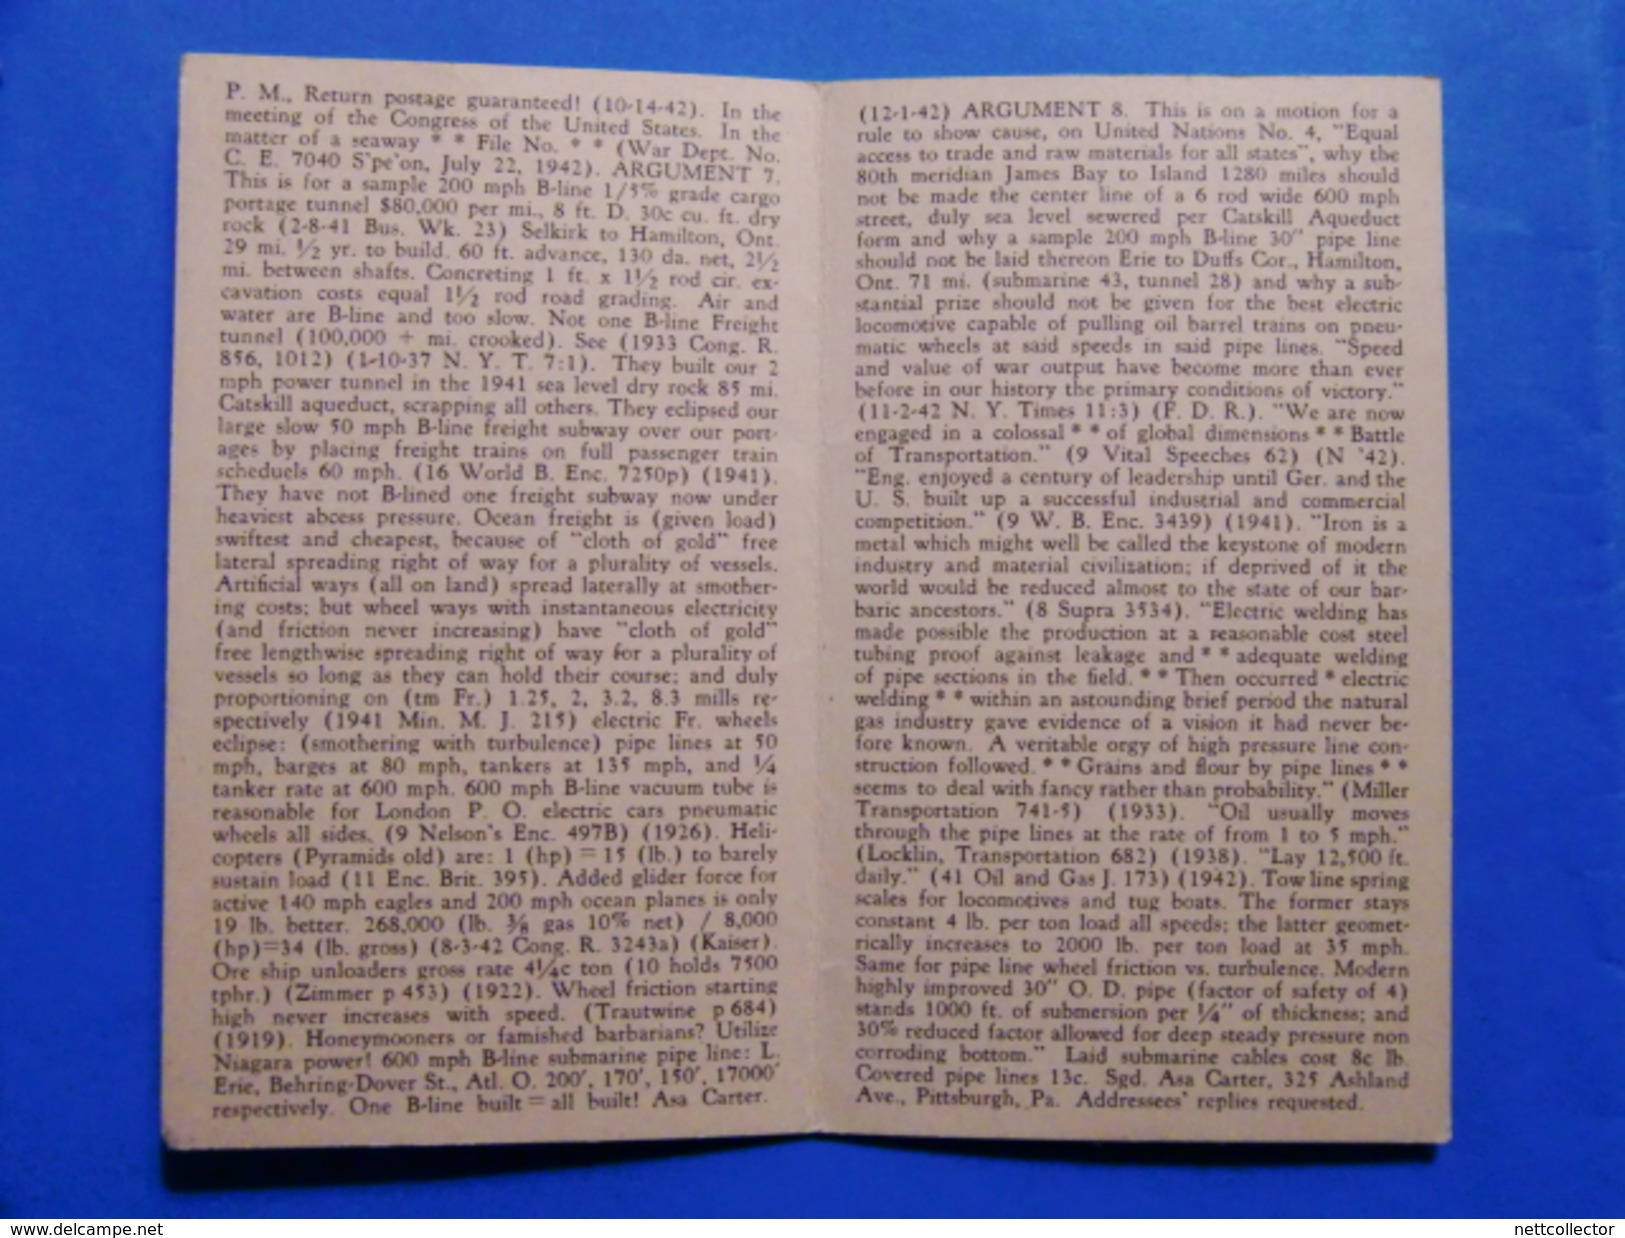 P. M., Return postage guaranteed! (10-14-42). In the
meeting of the Congress of the United States. In the
matter of a seaway * * File No. * * (War Dept. No.
C. E. 7040 S'pe'on, July 22, 1942). ARGUMENT 7.
This is for a sample 200 mph B-line 1/5% grade cargo
portage tunnel $80,000 per mi., 8 ft. D. 30c cu. ft. dry
rock (2-8-41 Bus. Wk. 23) Selkirk to Hamilton, Ont.
29 mi. ½ yr. to build. 60 ft. advance, 130 da. net, 2½
mi. between shafts. Concreting 1 ft. x 1½ rod cir. ex-
cavation costs equal 1½ rod road grading. Air and
water are B-line and too slow. Not one B-line Freight
tunnel (100,000 + mi. crooked). See (1933 Cong. R.
856, 1012) (1-10-37 N. Y. T. 7:1). They built our 2
mph power tunnel in the 1941 sea level dry rock 85 mi.
Catskill aqueduct, scrapping all others. They eclipsed our
large slow 50 mph B-line freight subway over our port-
ages by placing freight trains on full passenger train
scheduels 60 mph. (16 World B. Enc. 7250p) (1941).
They have not B-lined one freight subway now under
heaviest abcess pressure. Ocean freight is (given load)
swiftest and cheapest, because of "cloth of gold" free
lateral spreading right of way for a plurality of vessels.
Artificial ways (all on land) spread laterally at smother-
ing costs; but wheel ways with instantaneous electricity
(and friction never increasing) have "cloth of gold"
free lengthwise spreading right of way for a plurality of
vessels so long as they can hold their course; and duly
proportioning on (tm Fr.) 1.25, 2, 3.2, 8.3 mills re-
spectively (1941 Min. M. J. 215) electric Fr. wheels
eclipse: (smothering with turbulence) pipe lines at 50
mph, barges at 80 mph, tankers at 135 mph, and ¼
tanker rate at 600 mph. 600 mph B-line vacuum tube is
reasonable for London P. O. electric cars pneumatic
wheels all sides. (9 Nelson's Enc. 497B) (1926). Heli-
copters (Pyramids old) are: 1 (hp) = 15 (lb.) to barely
sustain load (11 Enc. Brit. 395). Added glider force for
active 140 mph eagles and 200 mph ocean planes is only
19 lb. better. 268,000 (lb. ⅜ gas 10% net) / 8,000
(hp)=34 (lb. gross) (8-3-42 Cong. R. 3243a) (Kaiser).
Ore ship unloaders gross rate 4¼c ton (10 holds 7500
tphr.) (Zimmer p 453) (1922). Wheel friction starting
high never increases with speed. (Trautwine p 684)
(1919). Honeymooners or famished barbarians? Utilize
Niagara power! 600 mph B-line submarine pipe line: L.
Erie, Behring-Dover St., Atl. O. 200', 170', 150', 17000'
respectively. One B-line built = all built! Asa Carter.
(12-1-42) ARGUMENT 8. This is on a motion for a
rule to show cause, on United Nations No. 4, "Equal
access to trade and raw materials for all states", why the
80th meridian James Bay to Island 1280 miles should
not be made the center line of a 6 rod wide 600 mph
street, duly sea level sewered per Catskill Aqueduct
form and why a sample 200 mph B-line 30" pipe line
should not be laid thereon Erie to Duffs Cor., Hamilton,
Ont. 71 mi. (submarine 43, tunnel 28) and why a sub-
stantial prize should not be given for the best electric
locomotive capable of pulling oil barrel trains on pneu-
matic wheels at said speeds in said pipe lines. "Speed
and value of war output have become more than ever
before in our history the primary conditions of victory."
(11-2-42 N. Y. Times 11:3) (F. D. R.). "We are now
engaged in a colossal * * of global dimensions * * Battle
of Transportation." (9 Vital Speeches 62) (N '42).
"Eng. enjoyed a century of leadership until Ger. and the
U. S. built up a successful industrial and commercial
competition." (9 W. B. Enc. 3439) (1941). "Iron is a
metal which might well be called the keystone of modern
industry and material civilization; if deprived of it the
world would be reduced almost to the state of our bar-
baric ancestors." (8 Supra 3534). "Electric welding has
made possible the production at a reasonable cost steel
tubing proof against leakage and * * adequate welding
of pipe sections in the field. * * Then occurred * electric
welding * * within an astounding brief period the natural
gas industry gave evidence of a vision it had never be-
fore known. A veritable orgy of high pressure line con-
struction followed. * * Grains and flour by pipe lines * *
seems to deal with fancy rather than probability." (Miller
Transportation 741-5) (1933). "Oil usually moves
through the pipe lines at the rate of from 1 to 5 mph."
(Locklin, Transportation 682) (1938). "Lay 12,500 ft.
daily." (41 Oil and Gas J. 173) (1942). Tow line spring
scales for locomotives and tug boats. The former stays
constant 4 lb. per ton load all speeds; the latter geomet-
rically increases to 2000 lb. per ton load at 35 mph.
Same for pipe line wheel friction vs. turbulence. Modern
highly improved 30" O. D. pipe (factor of safety of 4)
stands 1000 ft. of submersion per ¼" of thickness; and
30% reduced factor allowed for deep steady pressure non
corroding bottom." Laid submarine cables cost 8c lb.
Covered pipe lines 13c. Sgd. Asa Carter, 325 Ashland
Ave., Pittsburgh, Pa. Addressees' replies requested.
www.delcampe.net
nettcollector